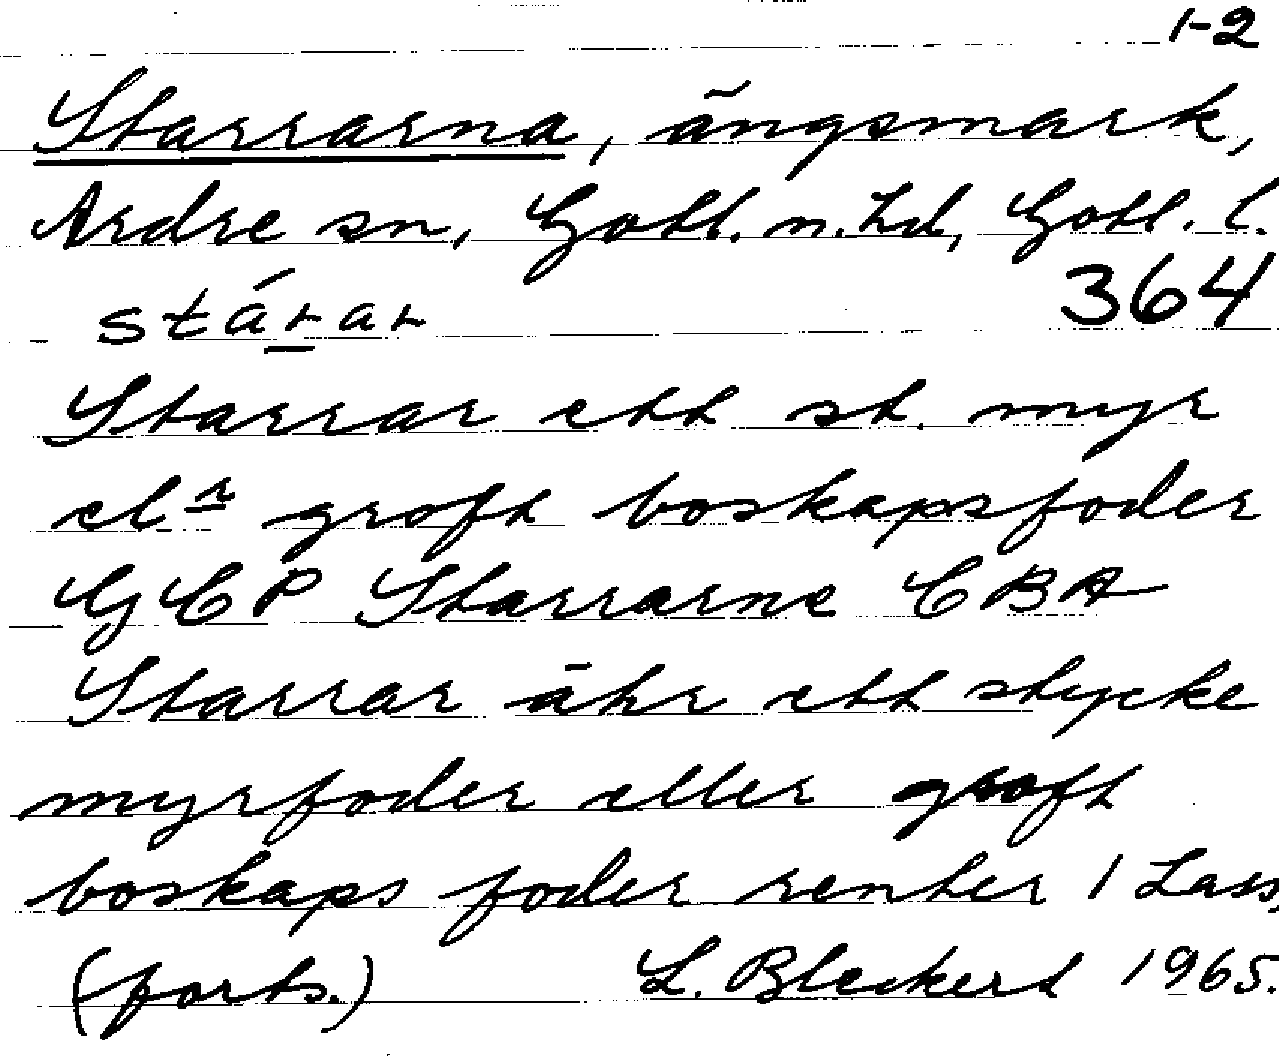 1-2
Starrarna, ängsmark,
Ardre sn, Gotl. n. hd, Gotl. l.
stárar 364
Starrar ett st. myr
elr groft boskapsfoder
GCP Starrarne CBA
Starrar ähr ett stycke
myrfoder eller groft
boskaps foder renter 1 Lass,
(forts.) L. Bleckert 1965.